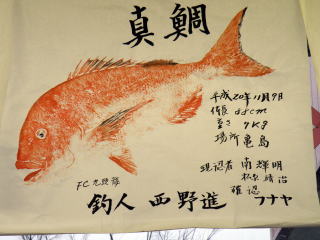 真鯛
平成20年11月9日
体長 88cm
重さ 7Kg
場所 亀島
現認者 南輝明
靖治
確認 フナヤ
FC
釣人 西野進